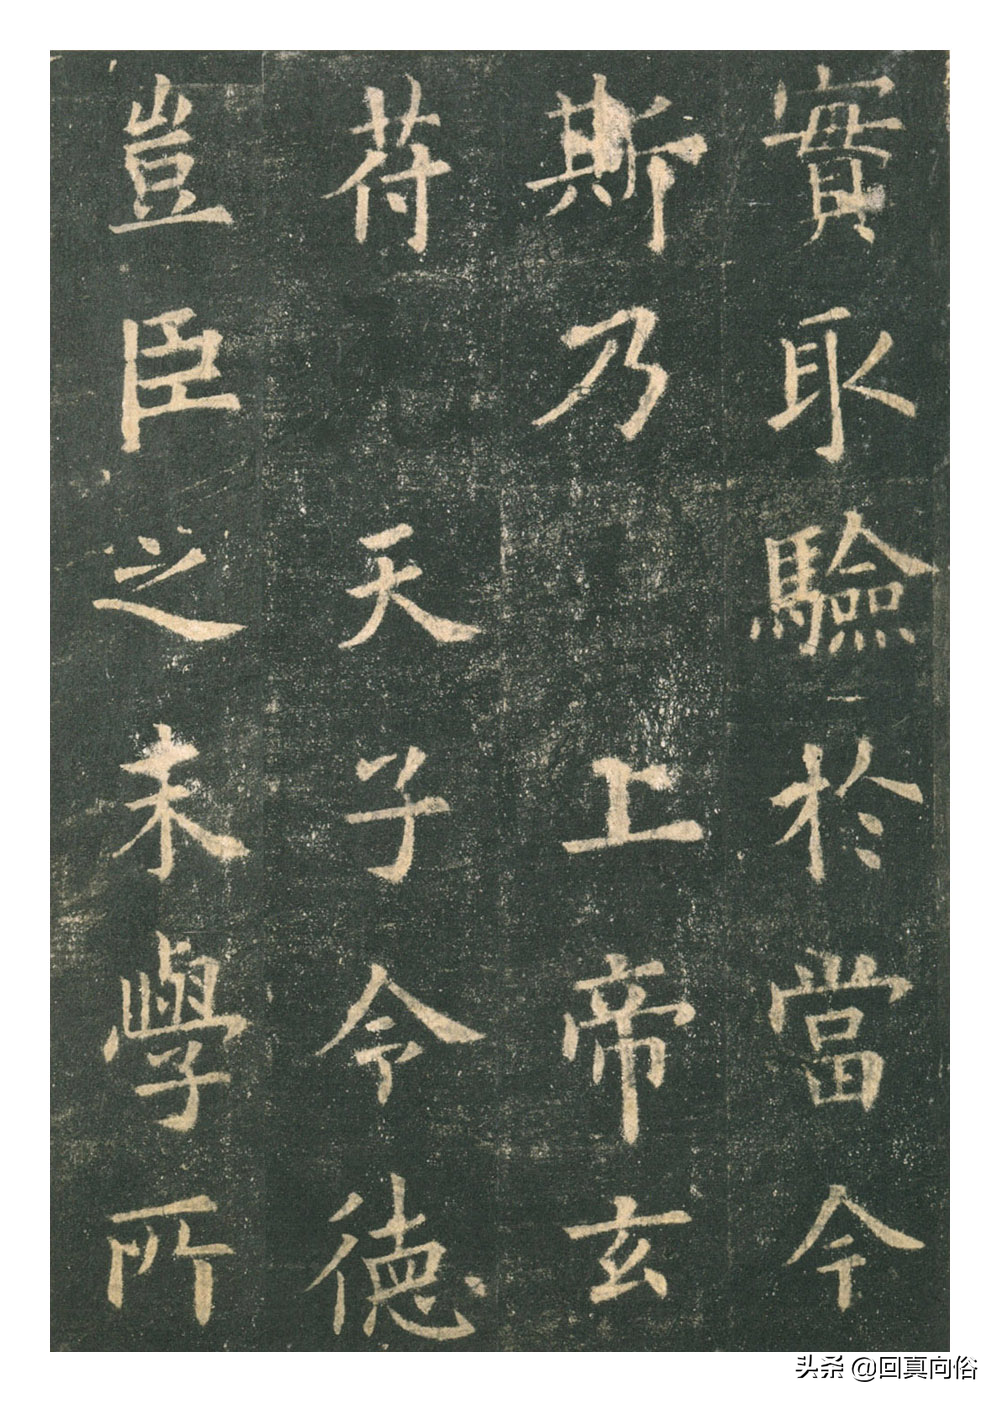 實取驗於當今
斯乃上帝玄
苻天子令德
豈臣之末學所
头条 @回真向俗